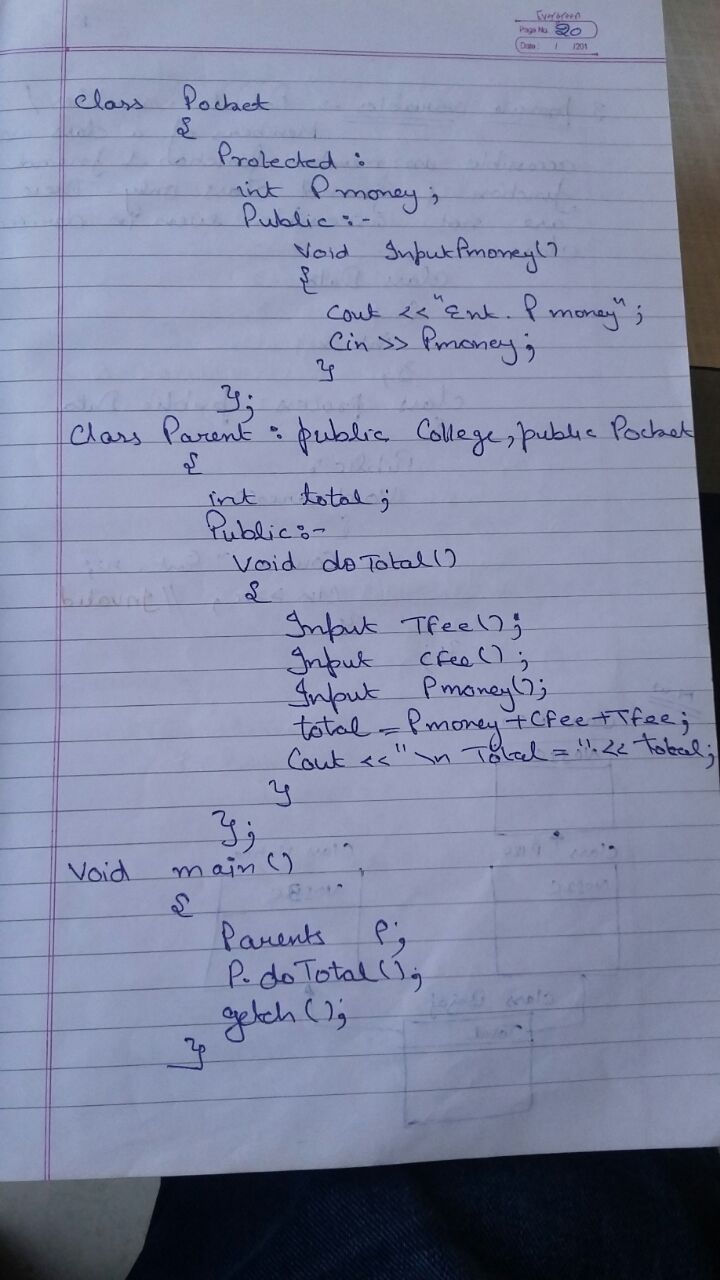 Page No. 20
Date: / /201
class Pocket
{
Protected :
int Pmoney;
Public :-
Void InputPmoney()
{
Cout << "Ent. P money";
Cin >> Pmoney;
}
};
Class Parent : public College, public Pocket
{
int total;
Public :-
Void doTotal()
{
Input Tfee();
Input Cfee();
Input Pmoney();
total = Pmoney + Cfee + Tfee;
Cout << "\n Total = ". << total;
}
};
Void main()
{
Parents P;
P. doTotal();
getch();
}